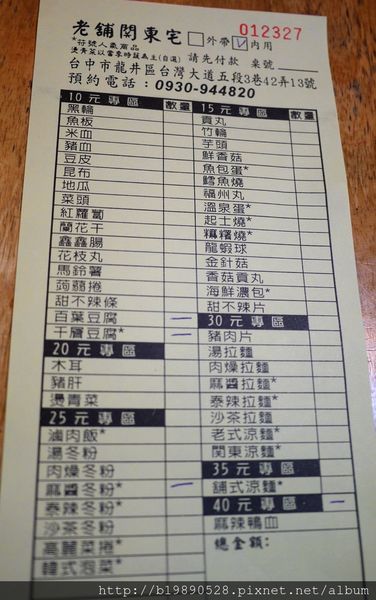 老舖關東宅 □外帶 ☑內用 012327
*符號人氣商品
燙青菜以當季時蔬為主(自選) 請先付款 桌號
台中市龍井區台灣大道五段3巷42弄13號
預約電話:0930-944820
10元專區 數量
黑輪
魚板
米血
豬血
豆皮
昆布
地瓜
菜頭
紅蘿蔔
蘭花干
鑫鑫腸
花枝丸
馬鈴薯
蒟蒻捲
甜不辣條
百葉豆腐 一
千層豆腐* 一
20元專區
木耳
豬肝
燙青菜
25元專區
滷肉飯*
湯冬粉
肉燥冬粉
麻醬冬粉* 一
泰辣冬粉*
沙茶冬粉
高麗菜捲*
韓式泡菜*
15元專區 數量
貢丸
竹輪
芋頭
鮮香菇
魚包蛋*
鱈魚燒
福州丸
溫泉蛋*
起士燒*
糯糬燒*
龍蝦球
金針菇
香菇貢丸
海鮮濃包*
甜不辣片
30元專區
豬肉片
湯拉麵
肉燥拉麵
麻醬拉麵*
泰辣拉麵*
沙茶拉麵
老式涼麵*
關東涼麵
35元專區
舖式涼麵*
40元專區 一
麻辣鴨血
總金額:
http://b19890528.pixnet.net/album